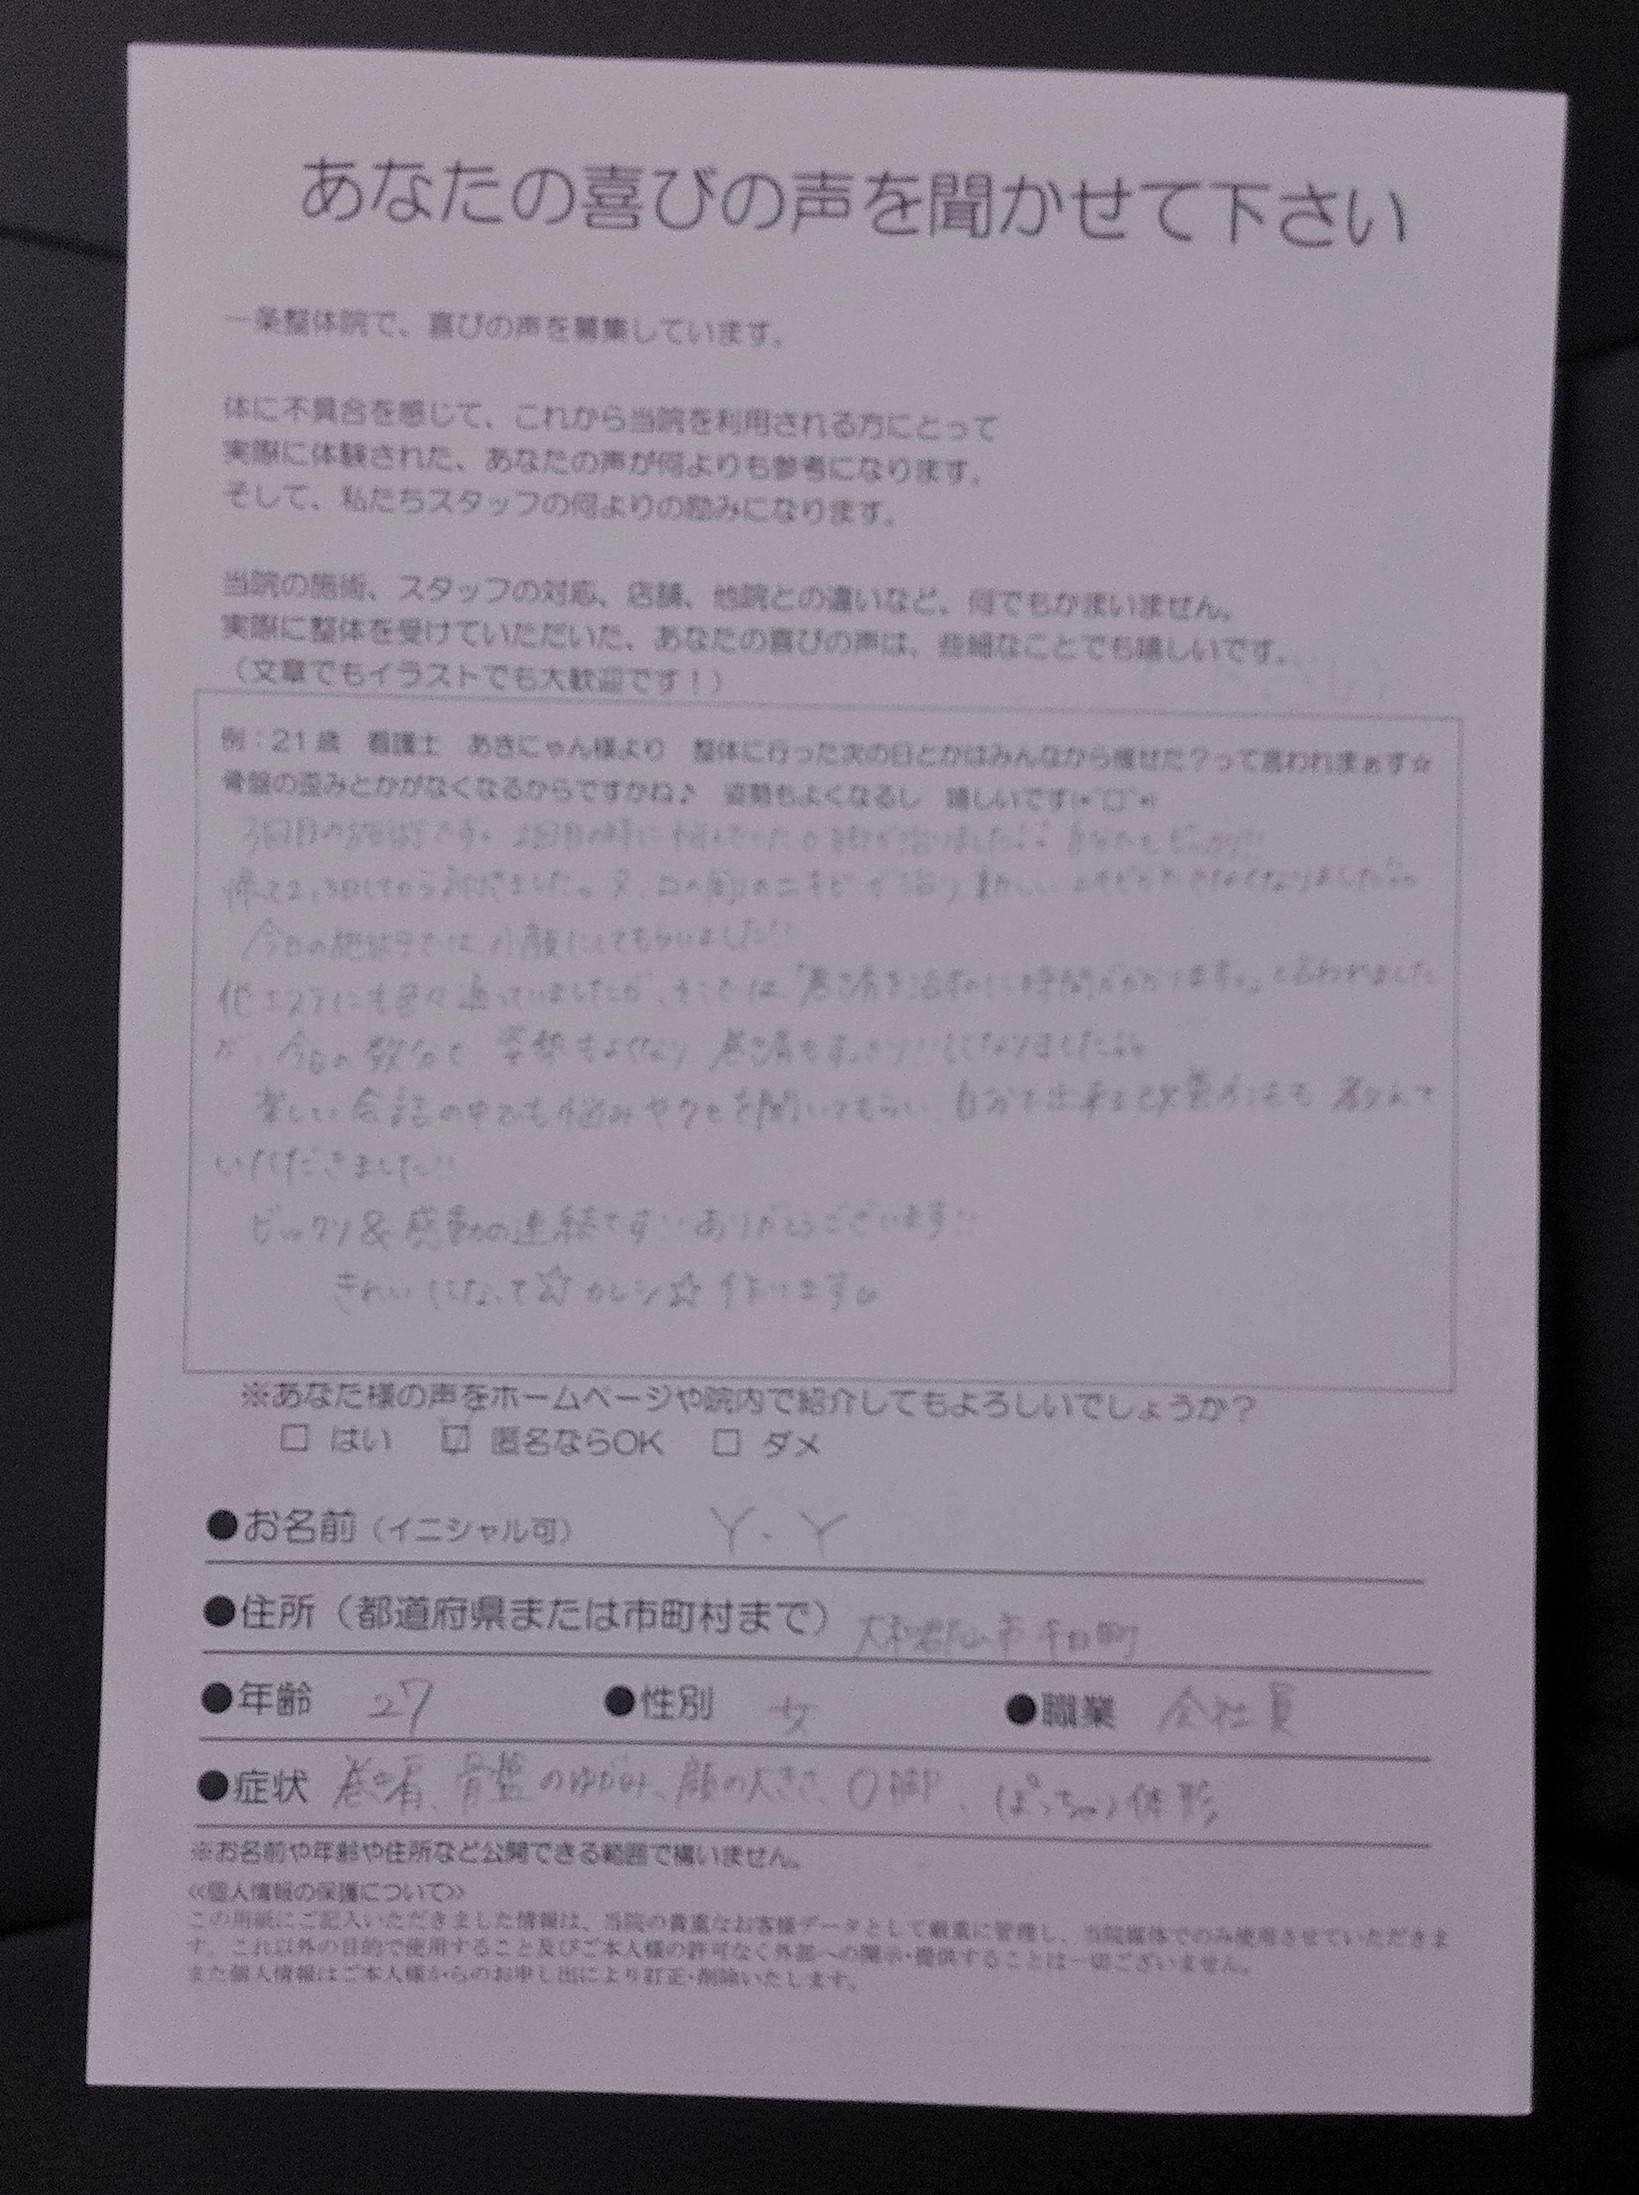 あなたの喜びの声を聞かせて下さい
一条整体院で、喜びの声を募集しています。
体に不具合を感じて、これから当院を利用される方にとって
実際に体験された、あなたの声が何よりも参考になります。
そして、私たちスタッフの何よりの励みになります。
当院の施術、スタッフの対応、店舗、他院との違いなど、何でもかまいません。
実際に整体を受けていただいた、あなたの喜びの声は、些細なことでも嬉しいです。
（文章でもイラストでも大歓迎です！）
例：21歳　看護士　あきにゃん様より　整体に行った次の日とかはみんなから痩せた？って言われまぁす☆
骨盤の歪みとかがなくなるからですかね♪　姿勢もよくなるし　嬉しいです(*´□`*)
3回目の施術です。2回目の時に悩んでいたO脚が治りました!! 自分でもビックリ!!
帰って2,3日してから 又、口の周りのニキビが治り 新しいニキビができなくなりました!!
今日の施術では、小顔にしてもらいました!!
他エステにも色々通っていましたが、そこでは「巻き肩を治すのに時間がかかります。」と言われました
が、今日の数分で 姿勢もよくなり 巻き肩もすっきり!!になりました!!
楽しい会話の中でも悩みやクセを聞いてもらい、自分で出来る改善方法も 教えて
いただきました!!
ビックリ&感動の連続です!! ありがとうございます!!
きれいになって☆カレシ☆作ります。
※あなた様の声をホームページや院内で紹介してもよろしいでしょうか？
□ はい　☑ 匿名ならOK　□ ダメ
●お名前（イニシャル可）　Y.Y
●住所（都道府県または市町村まで）大和郡山市千日町
●年齢　27　●性別　女　●職業　会社員
●症状 巻き肩、骨盤のゆがみ、顔の大きさ、O脚、ぽっちゃり体形
※お名前や年齢や住所など公開できる範囲で構いません。
≪個人情報の保護について≫
この用紙にご記入いただきました情報は、当院の貴重なお客様データとして厳重に管理し、当院媒体でのみ使用させていただきま
す。これ以外の目的で使用すること及びご本人様の許可なく外部への開示・提供することは一切ございません。
また個人情報はご本人様からのお申し出により訂正・削除いたします。